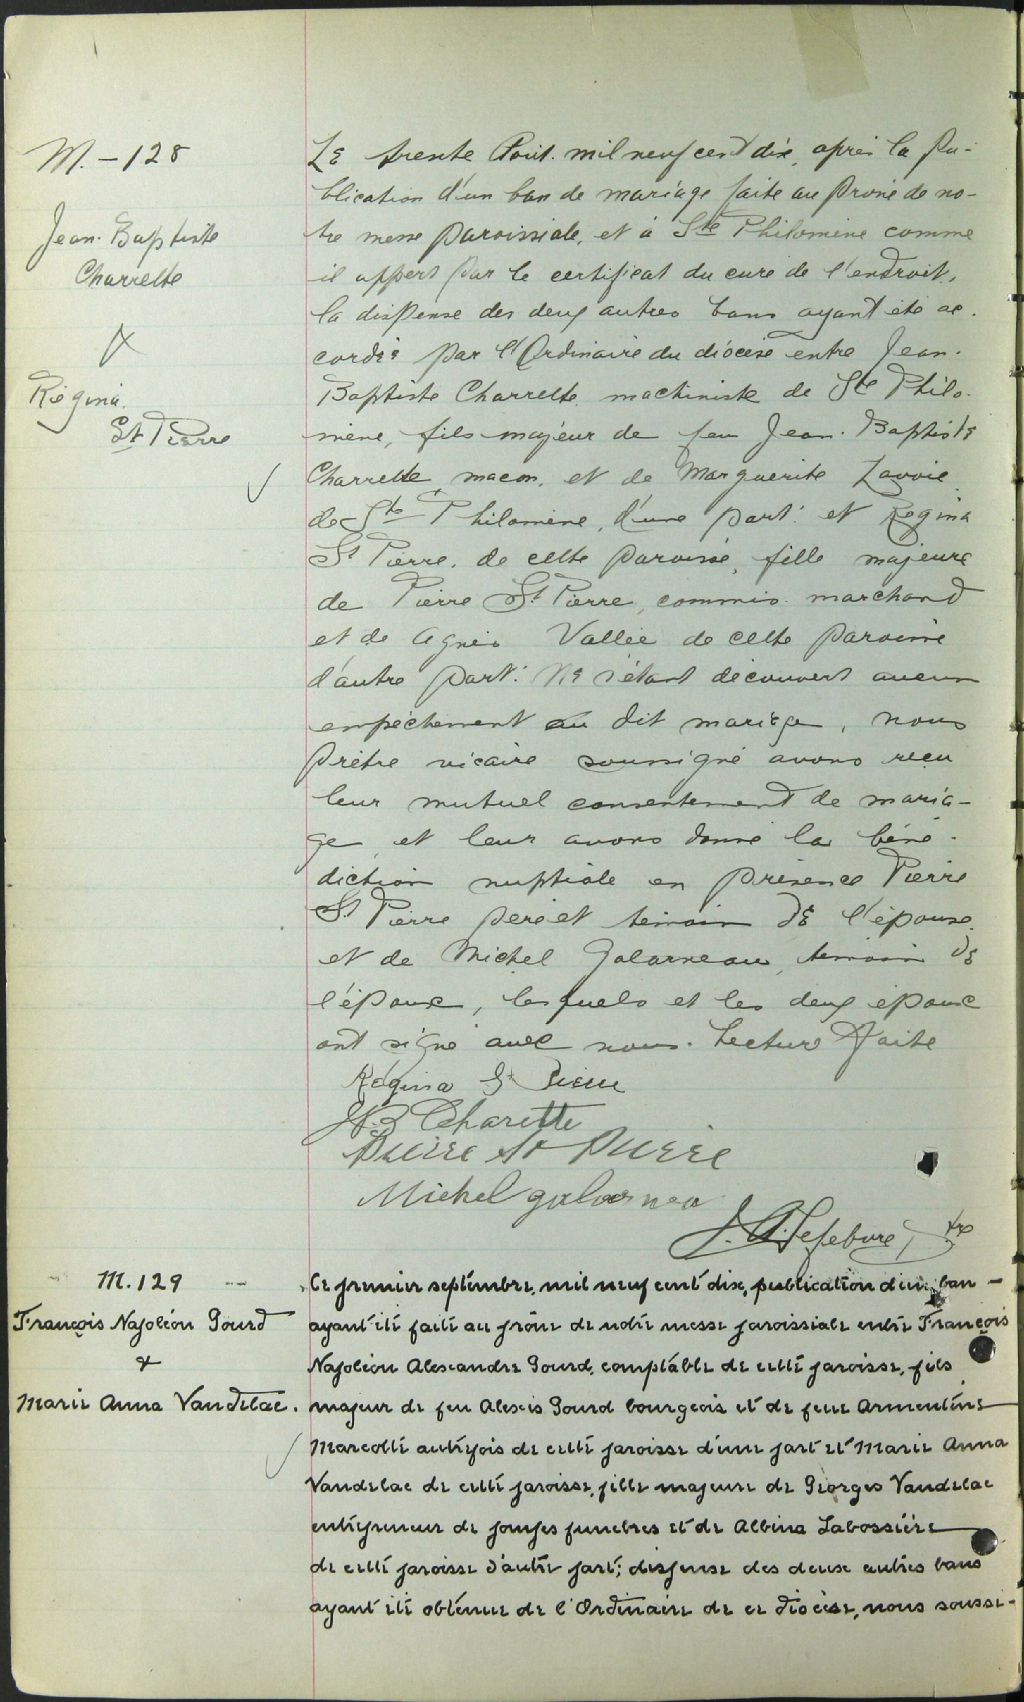 M. - 128
Jean-Baptiste
Charrette
&
Régina
St Pierre
Le trente Aout mil neuf cent dix, après la pu-
blication d'un ban de mariage faite au prone de no-
tre messe paroissiale, et à Ste Philomène comme
il appert par le certificat du cure de l'endroit,
la dispense des deux autres bans ayant été ac-
cordée par l'Ordinaire du diocèse entre Jean-
Baptiste Charrette, machiniste de Ste Philo-
mène, fils majeur de feu Jean-Baptiste
Charrette, macon, et de Marguerite Lavoie
de Ste Philomène, d'une part: et Regina
St Pierre, de cette paroisse, fille majeure
de Pierre St Pierre, commis marchand
et de Agnès Vallée de cette paroisse
d'autre part: Ne s'étant découvert aucun
empêchement au dit mariage, nous
prêtre vicaire soussigné avons reçu
leur mutuel consentement de maria-
ge, et leur avons donné la béné-
diction nuptiale en présence Pierre
St Pierre père et temoin de l'épouse,
et de Michel Galarneau, temoin de
l'époux, lesquels et les deux époux
ont signé avec nous. Lecture faite
Régina St Pierre
J.B Charette
Pierre St Pierre
Michel galarnea
J. A. Lefebvre Ptre
M. 129
François Napoléon Gourd
&
Marie Anna Vandelac.
Le premier septembre, mil neuf cent dix, publication d'un ban -
ayant été faite au prône de notre messe paroissiale entre François
Napoléon Alexandre Gourd, comptable de cette paroisse, fils
majeur de feu Alexis Gourd bourgeois et de feue Armentine
Marcotte autrefois de cette paroisse d'une part et Marie Anna
Vandelac de cette paroisse, fille majeure de Georges Vandelac
entrepreneur de pompes funèbres et de Albina Labossière
de cette paroisse d'autre part; dispense des deux autres bans
ayant été obtenue de l'Ordinaire de ce diocèse, nous soussi-